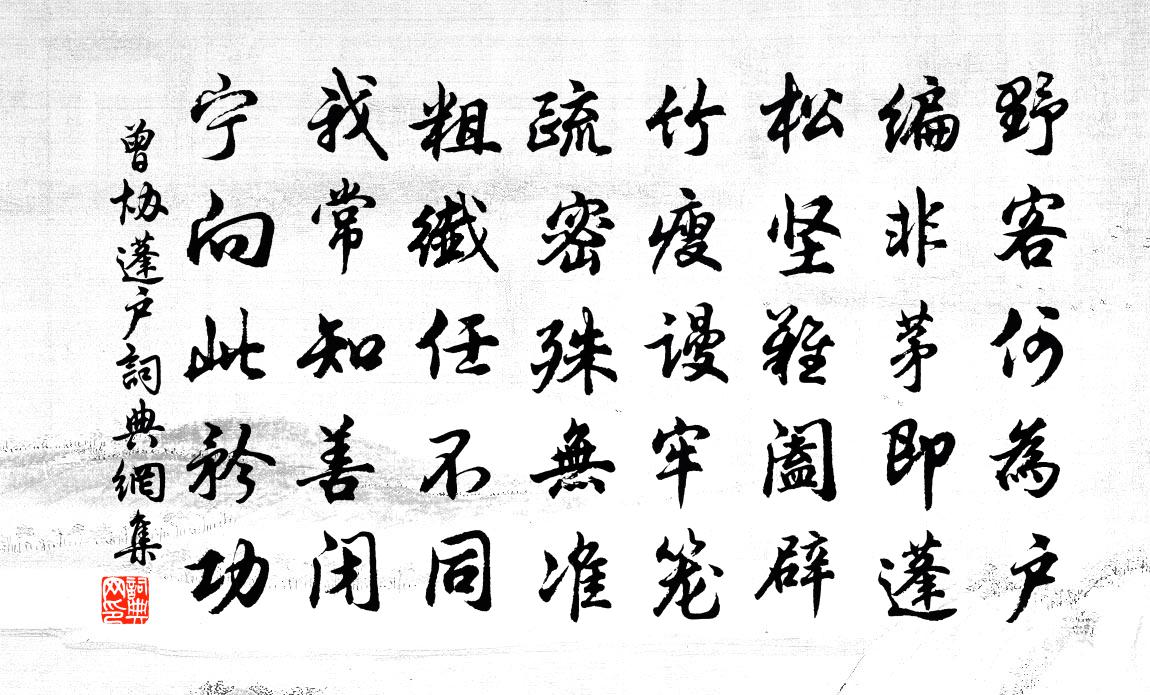 野客何為户
编非茅即蓬
松坚难阖辟
竹瘦谩牢笼
疏密殊無准
粗纖任不同
我常知善闭
宁向此矜功
曾协蓬户詞典網集
詞典网印